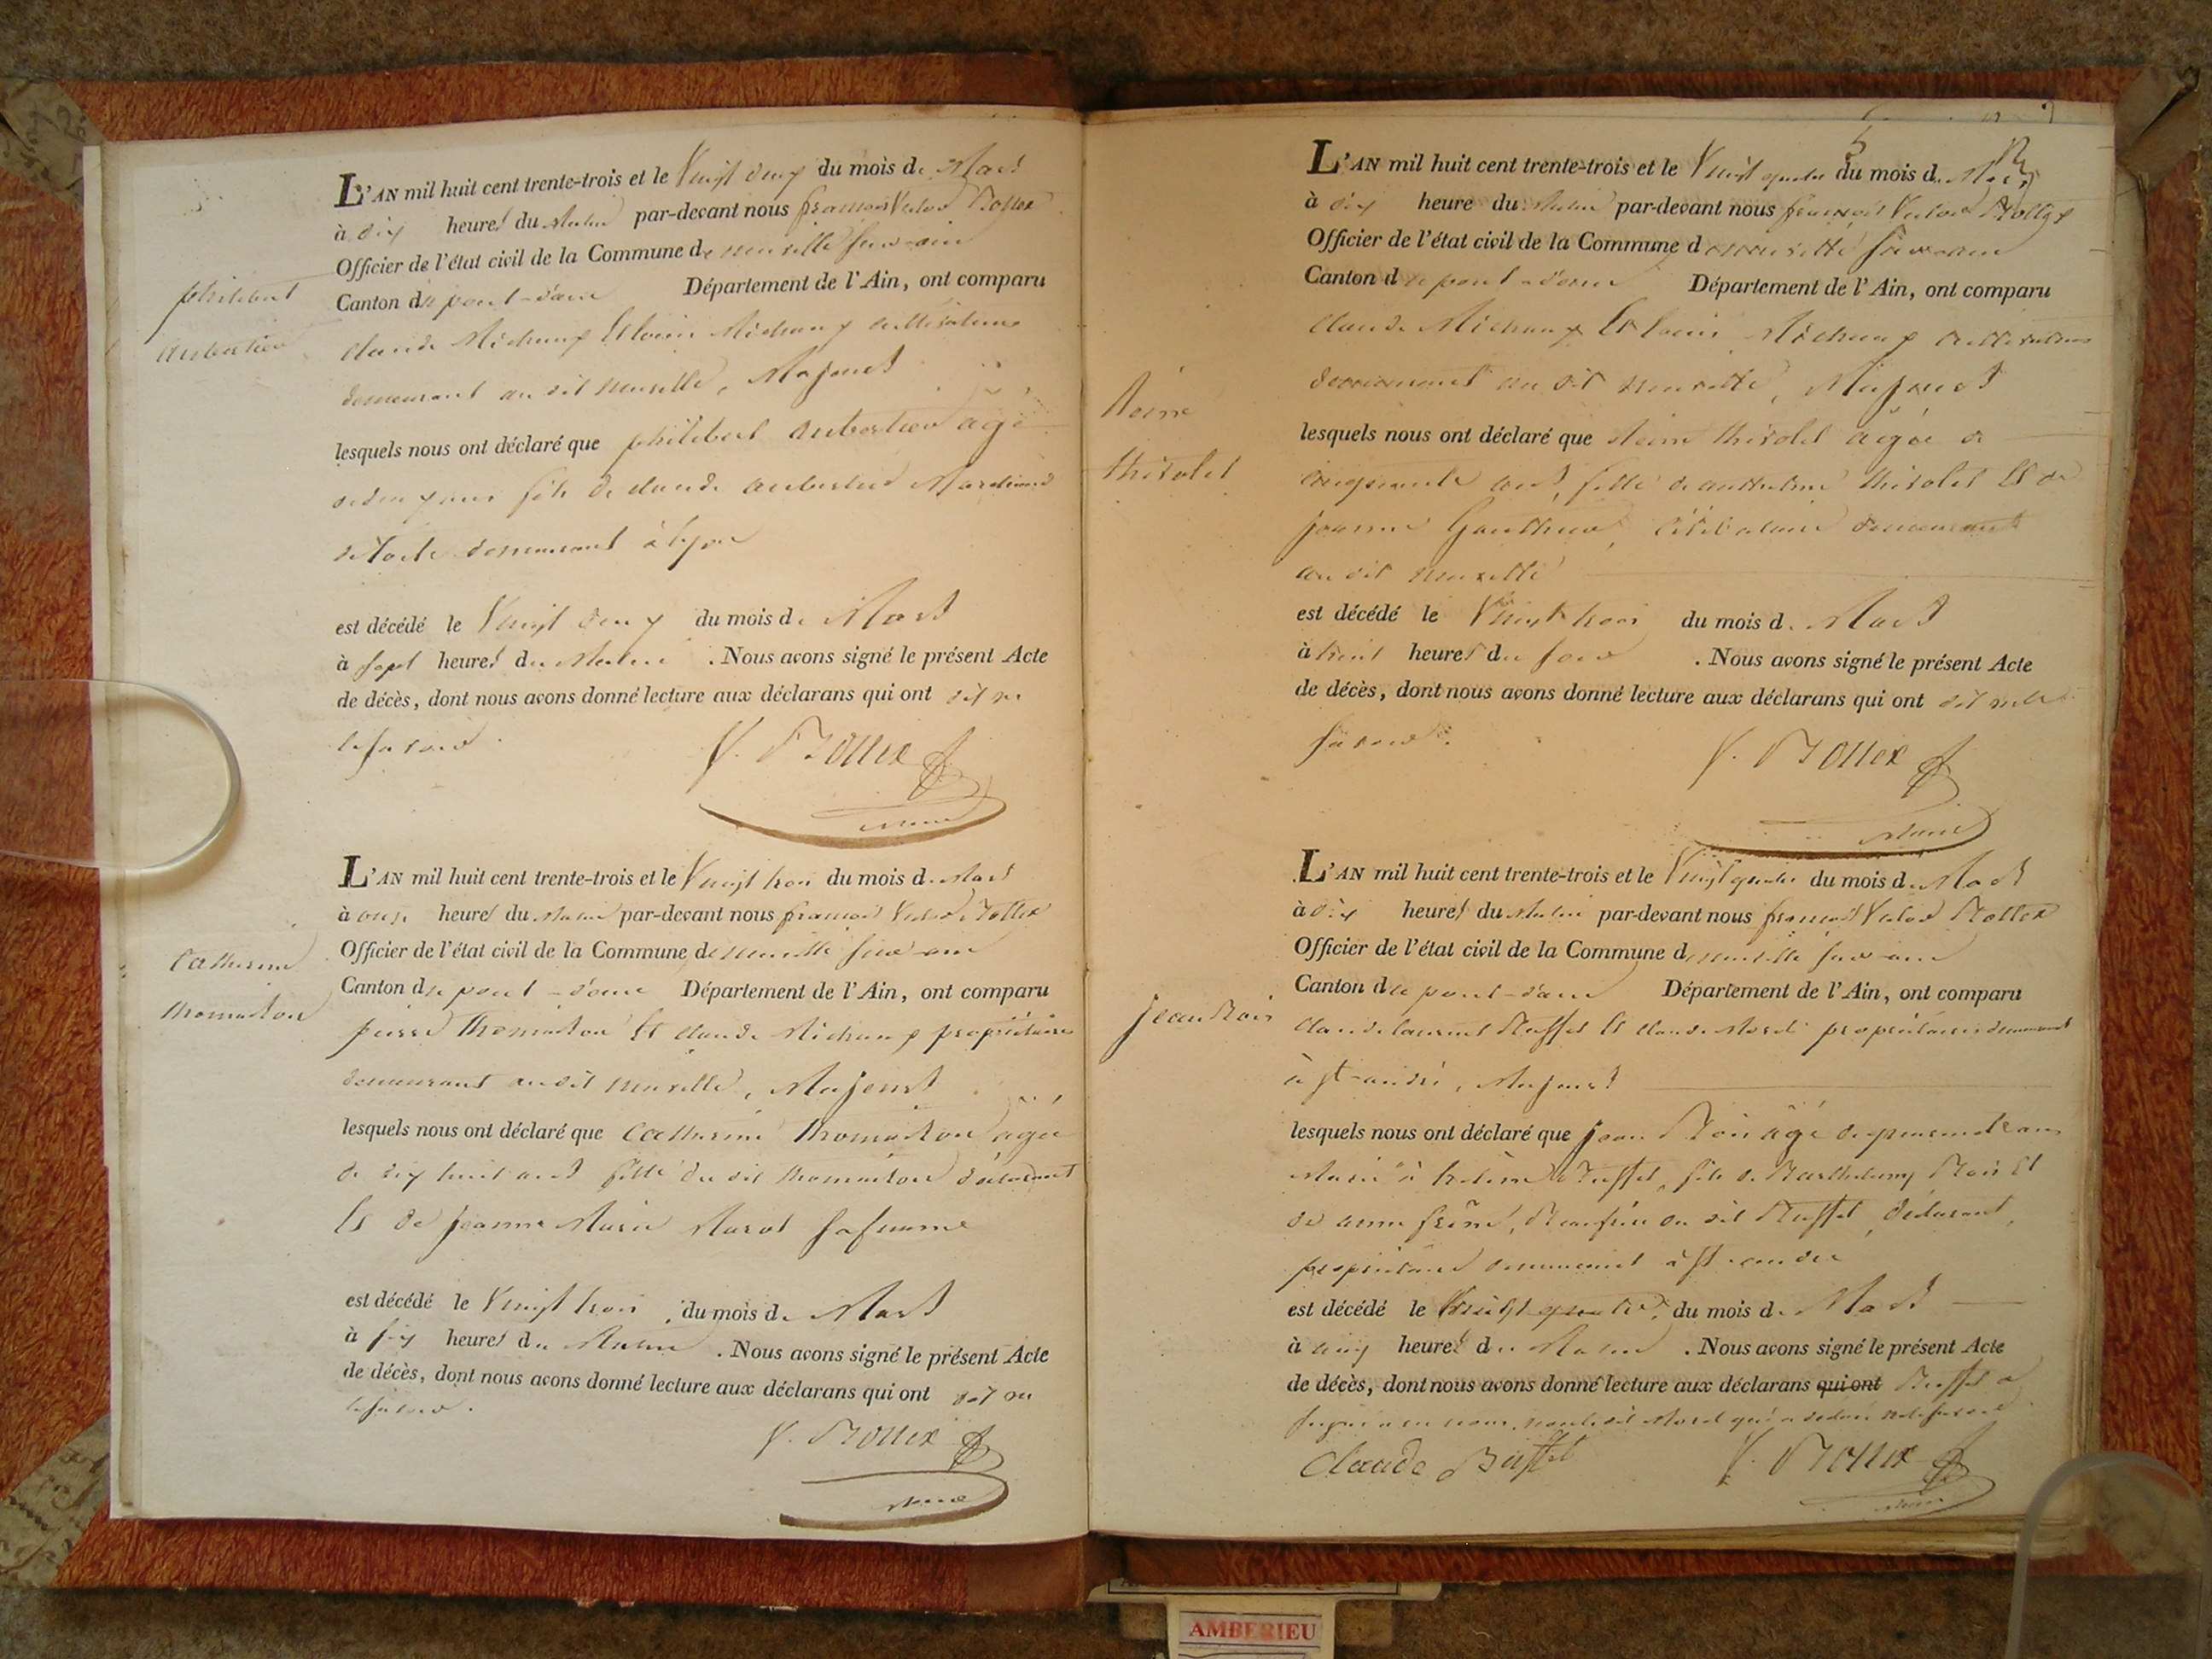 philibert
L'AN mil huit cent trente-trois et le Vingt deux du mois de Mars
à dix heures du Matin par-devant nous françois Victor Bollex
Officier de l'état civil de la Commune de neuville sur-ain
Canton de pont-d'ain Département de l'Ain, ont comparu
claude Michaux Et louis Michaux cultivateurs
demeurant au dit neuville, Majeurs
lesquels nous ont déclaré que philibert agé
de dix jours fils de claude Marchand
demeurant à lyon
est décédé le Vingt deux du mois de Mars
à sept heures du Matin . Nous avons signé le présent Acte
de décès, dont nous avons donné lecture aux déclarans qui ont dit ne
le savoir.
V. Bollex
Maire
Catherine
thomasson
L'AN mil huit cent trente-trois et le Vingt trois du mois de Mars
à onze heures du Matin par-devant nous françois Victor Bollex
Officier de l'état civil de la Commune de neuville sur-ain
Canton de pont-d'ain Département de l'Ain, ont comparu
pierre thomasson Et claude Michaux propriétaires
demeurant au dit neuville, Majeurs
lesquels nous ont déclaré que Catherine thomasson agée
de dix huit ans fille du dit thomasson déclarant
Et de jeanne Marie Marol sa femme
est décédé le Vingt trois du mois de Mars
à six heures du Matin . Nous avons signé le présent Acte
de décès, dont nous avons donné lecture aux déclarans qui ont dit ne
le savoir.
V. Bollex
Maire
Reine
thivolet
L'AN mil huit cent trente-trois et le Vingt quatre du mois de Mars
à dix heure du Matin par-devant nous françois Victor Bollex
Officier de l'état civil de la Commune de neuville sur-ain
Canton de pont-d'ain Département de l'Ain, ont comparu
claude Michaux Et louis Michaux cultivateurs
demeurant au dit neuville, Majeurs
lesquels nous ont déclaré que Reine thivolet agée de
cinquante ans, fille de anthelme thivolet Et de
jeanne Gauthier, Célibataire demeurant
au dit neuville
est décédé le Vingt trois du mois de Mars
à huit heures du soir . Nous avons signé le présent Acte
de décès, dont nous avons donné lecture aux déclarans qui ont dit ne le
savoir.
V. Bollex
Maire
jean Roi
L'AN mil huit cent trente-trois et le Vingt quatre du mois de Mars
à dix heures du Matin par-devant nous françois Victor Bollex
Officier de l'état civil de la Commune de neuville sur-ain
Canton de pont-d'ain Département de l'Ain, ont comparu
claude laurent Buffet Et claude Morel propriétaires demeurant
à St-andré, Majeurs
lesquels nous ont déclaré que jean Roi âgé de quarante ans
Marié à Buffet, fils de Barthelemy Roi Et
de anne, Beaufrère du dit Buffet, déclarant,
propriétaire demeurant à St-andré
est décédé le Vingt quatre du mois de Mars
à cinq heures du Matin . Nous avons signé le présent Acte
de décès, dont nous avons donné lecture aux déclarans qui ont Buffet a
signé avec nous, non le dit Morel qui a déclaré ne le savoir.
Claude Buffet V. Bollex
Maire
AMBERIEU